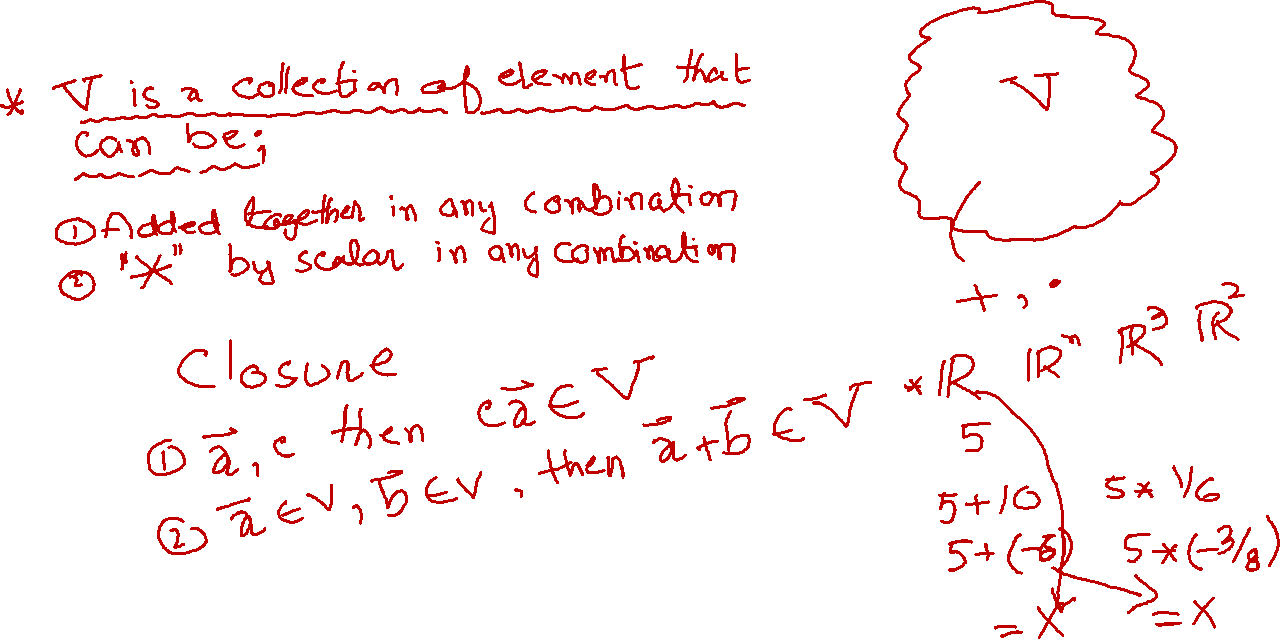 * V is a collection of element that
can be;
① Added together in any combination
② "*" by scalar in any combination
V
+, •
Closure
① a⃗, c then ca⃗ ∈ V
② a⃗ ∈ V, b⃗ ∈ V, then a⃗+b⃗ ∈ V
* ℝ ℝⁿ ℝ³ ℝ²
5
5+10 5* 1/6
5+(-6) 5*(-3/8)
= X = X